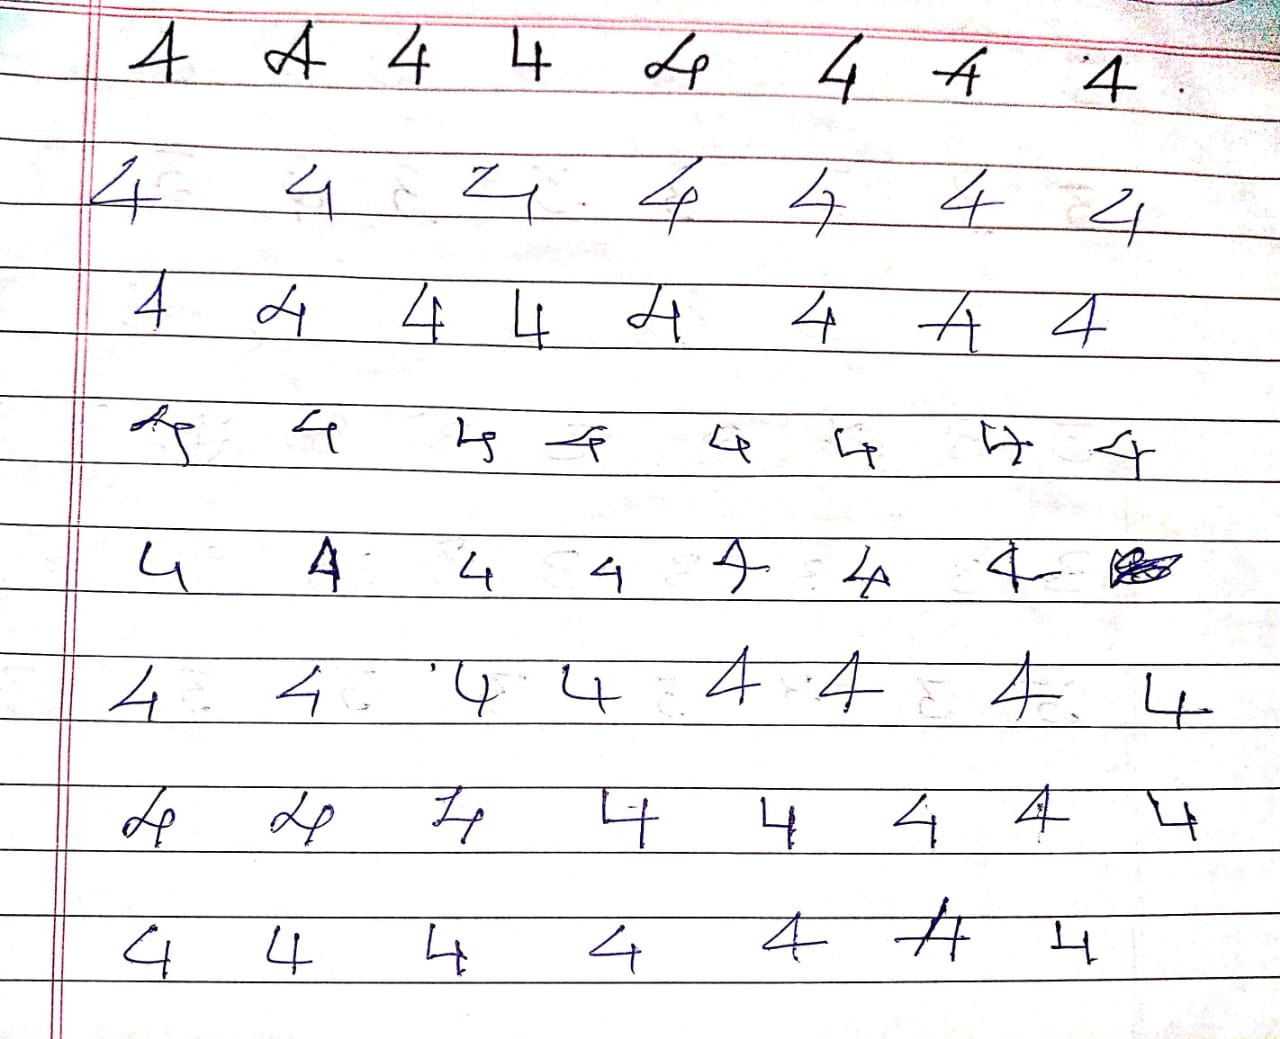 4 4 4 4 4 4 4 4
4 4 4 4 4 4 4
4 4 4 4 4 4 4 4
4 4 4 4 4 4 4 4
4 4 4 4 4 4 4
4 4 4 4 4 4 4 4
4 4 4 4 4 4 4 4
4 4 4 4 4 4 4